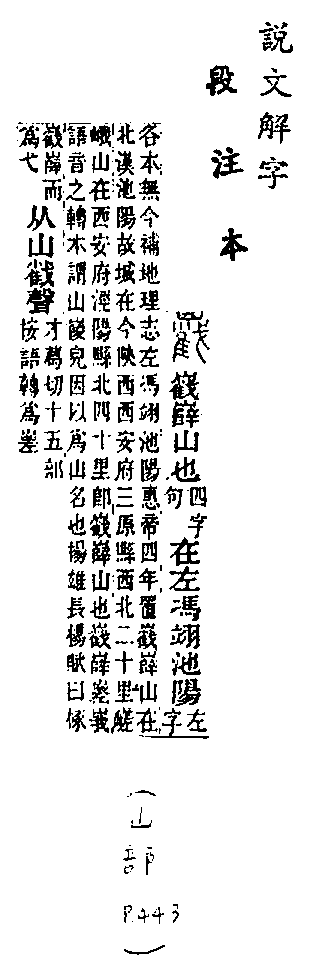 説文解字
段注本
巀嶭山也四字句在左馮翊池陽左字
各本無今補地理志左馮翊池陽惠帝四年置巀嶭山在
北漢池陽故城在今陝西西安府三原縣西北二十里嵯
峨山在西安府涇陽縣北四十里卽巀嶭山也巀嶭嵯峩
語音之轉本謂山皃因以爲山名也揚雄長楊賦曰椓
巀嶭而
爲弋
从山𢧵聲
才葛切十五部
按語轉爲嵳
(山部 P.443)